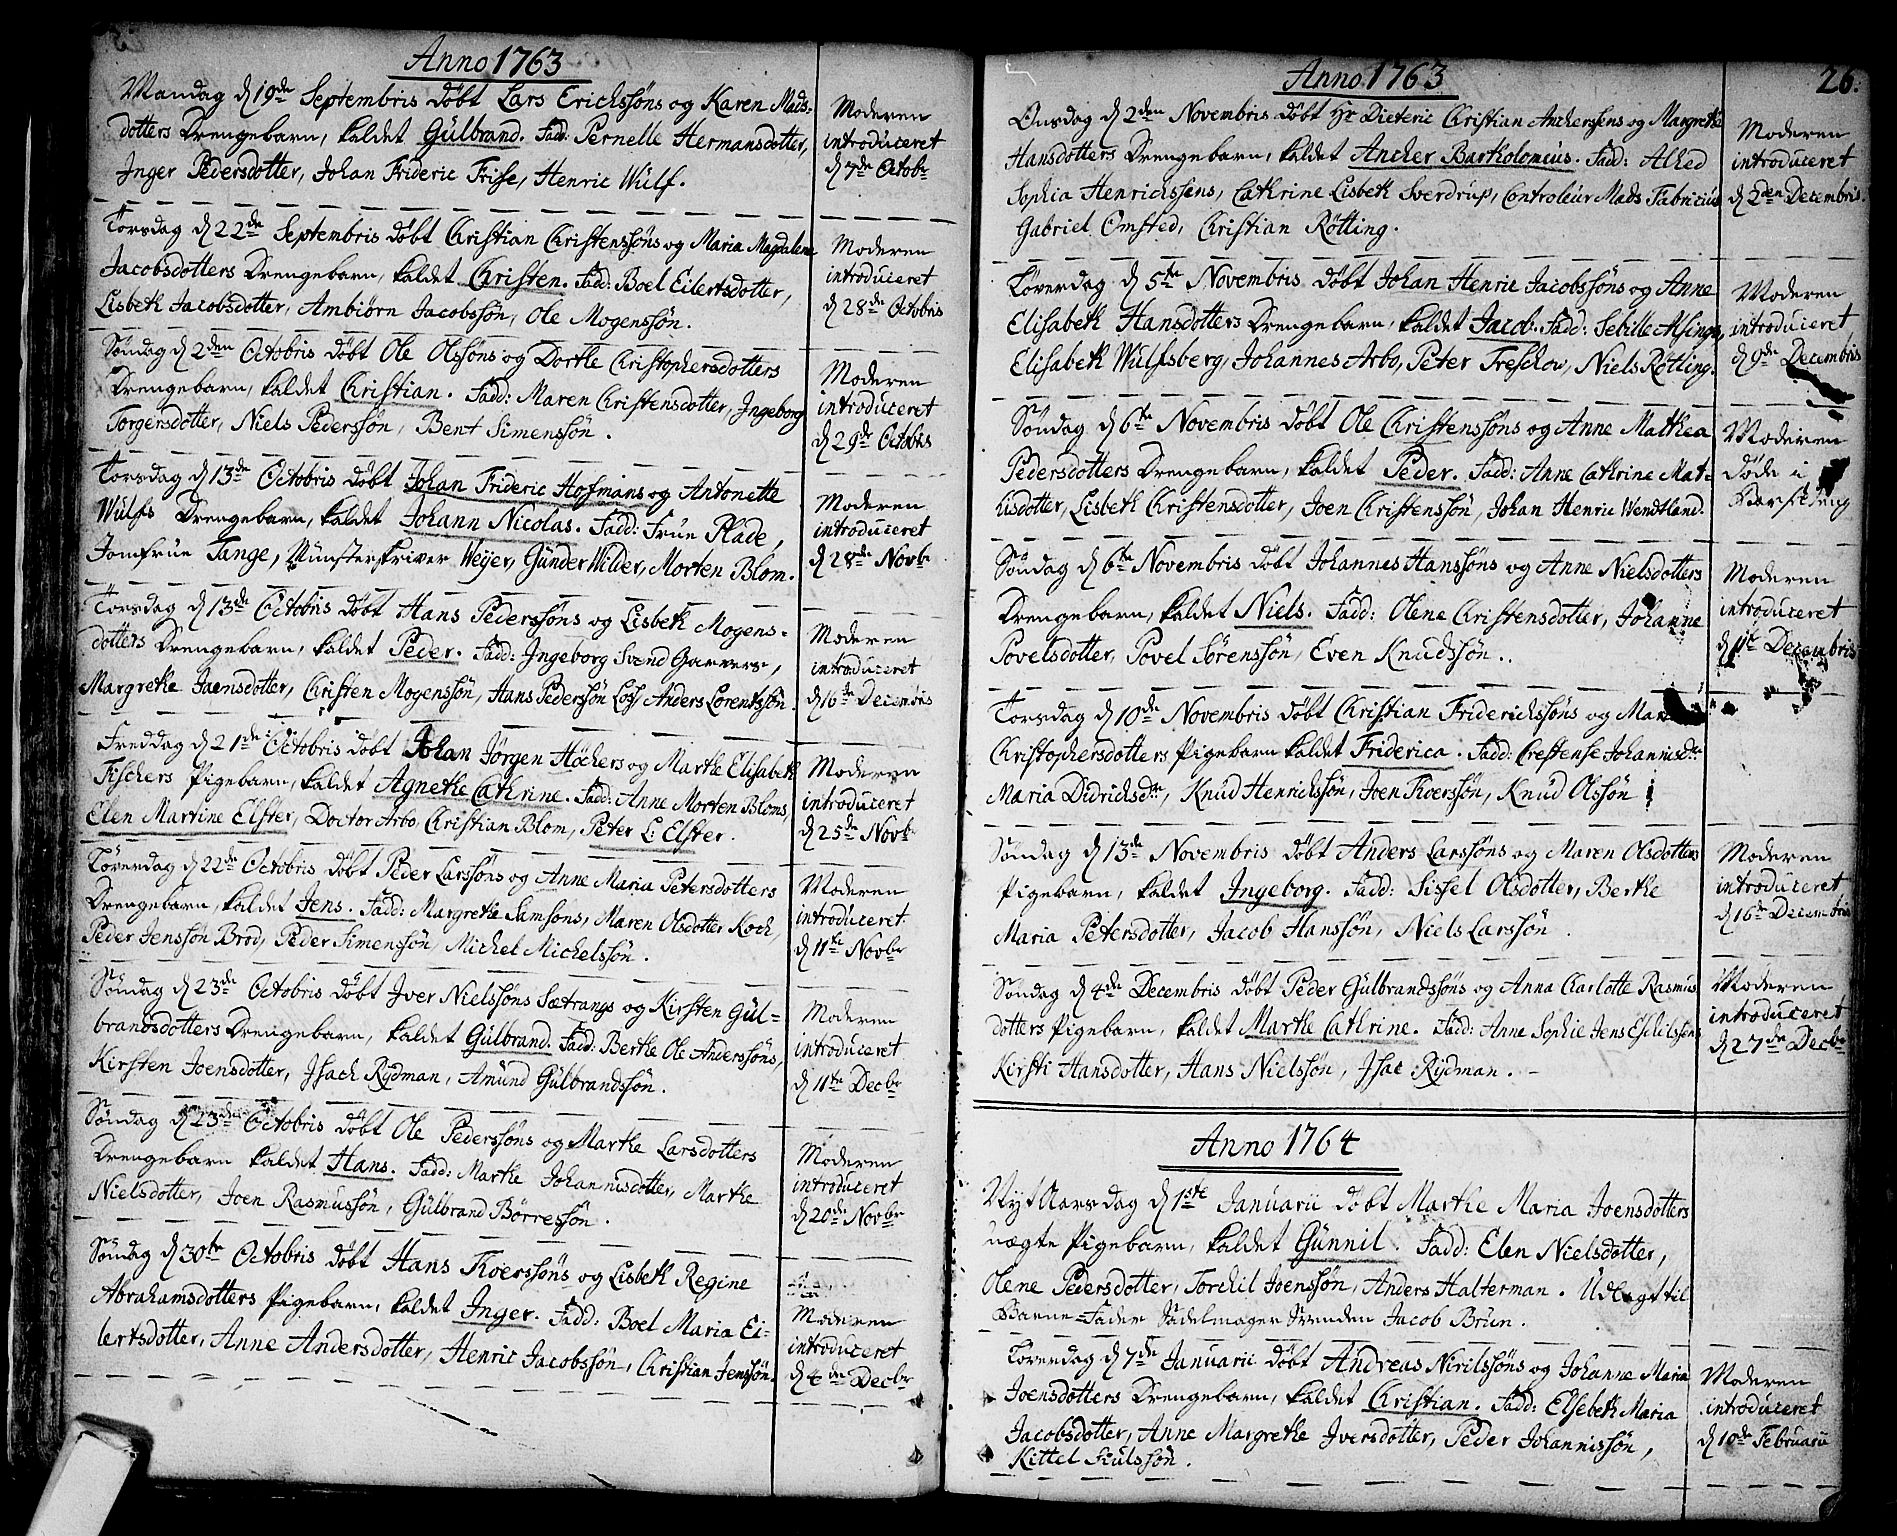 Anno 1763
Mandag d 19de Septembris døbt Lars Erichssøns og Karen Mads-
dotters Drengebarn, kaldet Gülbrand. Fad: Pernelle Hermansdotter,
Inger Pedersdotter, Johan Frideric Frise, Henric Wülf.
Moderen
introduceret
d 7de Octobr
Torsdag d 22de Septembris døbt Christian Christenssøns og Maria Magdalene
Jacobsdotters Drengebarn, kaldet Christen. Fadd: Boel Eilertsdotter,
Lisbeth Jacobsdotter, Ambiørn Jacobssøn, Ole Mogenssøn.
Moderen
introduceret
d 28de Octobris
Søndag d 2den Octobris døbt Ole Olssøns og Dorthe Christophersdotters
Drengebarn, kaldet Christian. Fadd: Maren Christensdotter, Ingeborg
Torgersdotter, Niels Pederssøn, Bent Simenssøn.
Moderen
introduceret
d 29de Octobris
Torsdag d 13de Octobris døbt Johan Frideric Hofmans og Antonette
Wülfs Drengebarn, kaldet Johann Nicolas. Fadd: Frue Plade,
Jomfrue Tange, Münsterskriver Weyer, Günder Wilder, Morten Blom.
Moderen
introduceret
d 28de Novbr
Torsdag d 13de Octobris døbt Hans Pederssøns og Lisbeth Mogens-
dotters Drengebarn, kaldet Peder. Fadd: Ingeborg Svend Garvers,
Margrethe Joensdotter, Christen Mogenssøn, Hans Pederssøn Loss, Anders Lorentssøn.
Moderen
introduceret
d 16de Decembris
Freddag d 21de Octobris døbt Johan Jørgen Höckers og Marthe Elisabeth
Fischers Pigebarn, kaldet Agnethe Cathrine. Fadd: Anne Morten Bloms,
Elen Martine Elster, Doctor Arbo, Christian Blom, Peter L: Elster.
Moderen
introduceret
d 25de Novbr
Løverdag d 22de Octobris døbt Peder Larssøns og Anne Maria Petersdotters
Drengebarn, kaldet Jens. Fadd: Margrethe Samsons, Maren Olsdotter Koch,
Peder Jenssøn Brod, Peder Simenssøn, Michel Michelssøn.
Moderen
introduceret
d 11te Novbr
Søndag d 23de Octobris døbt Iver Nielssøns Sætrangs og Kirsten Gül-
brandsdotters Drengebarn, kaldet Gülbrand. Fadd: Berthe Ole Anderssøns,
Kirsten Joensdotter, Isach Rydman, Amund Gülbrandssøn.
Moderen
introduceret
d 11te Decbr
Søndag d 23de Octobris døbt Ole Pederssøns og Marthe Larsdotters
Drengebarn kaldet Hans. Fadd: Marthe Johannisdotter, Marthe
Nielsdotter, Joen Rasmussøn, Gülbrand Börressøn.
Moderen
introduceret
d 20de Novbr
Søndag d 30te Octobris døbt Hans Koerssøns og Lisbeth Regine
Abrahamsdotters Pigebarn, kaldet Inger. Fadd: Boel Maria Ei-
lertsdotter, Anne Andersdotter, Henric Jacobssøn, Christian Jenssøn.
Moderen
introduceret
d 4de Decbr
Anno 1763
26.
Onsdag d 2den Novembris døbt Hr Dieteric Christian Anchersens og Margrethe
Hansdotters Drengebarn, kaldet Ancher Bartholomius. Fadd: Alhed
Sophia Henrichssens, Cathrine Lisbeth Sverdrup, Controleur Mads Fabricius
Gabriel Omsted, Christian Rötting.
Moderen
introduceret
d 2den Decembris.
Løverdag d 5te Novembris døbt Johan Henric Jacobssøns og Anne
Elisabeth Hansdotters Drengebarn, kaldet Jacob. Fadd: Sebille Alsings,
Elisabeth Wülfsberg, Johannes Arbo, Peter Treschow, Niels Rötting.
Moderen
introduceret
d 9de Decembris
Søndag d 6te Novembris døbt Ole Christenssøns og Anne Mathea
Pedersdotters Drengebarn, kaldet Peder. Fadd: Anne Cathrine Mat-
hisdotter, Lisbeth Christensdotter, Joen Christenssøn, Johan Henric Wendtland.
Moderen
døde i
Barselseng
Søndag d 6te Novembris døbt Johannes Hanssøns og Anne Nielsdotters
Drengebarn, kaldet Niels. Fadd: Olene Christensdotter, Johanne
Povelsdotter, Povel Sørenssøn, Even Knudssøn.
Moderen
introduceret
d 11te Decembris
Torsdag d 10de Novembris døbt Christian Friderichssøns og Mar
Christophersdotters Pigebarn kaldet Friderica. Fadd: Crestense Johannisdtr
Maria Didrichsdtr, Knud Henrichssøn, Joen Koerssøn, Knud Olssøn
Søndag d 13de Novembris døbt Anders Larssøns og Maren Olsdotters
Pigebarn, kaldet Ingeborg. Fadd: Sissel Olsdotter, Berthe
Maria Petersdotter, Jacob Hanssøn, Niels Larssøn.
Moderen
introduceret
d 16de Decembris
Søndag d 4de Decembris døbt Peder Gülbrandssøns og Anna Charlotte Rasmus
dotters Pigebarn, kaldet Marthe Cathrine. Fadd: Anne Sophie Jens Eschilssøns
Kirsti Hansdotter, Hans Nielssøn, Isac Rydman.
Moderen
introduceret
d 27de Decbr
Anno 1764
Nyt Aarsdag d 1ste Januarii døbt Marthe Maria Joensdotters
uægte Pigebarn, kaldet Günnil. Fadd: Elen Nielsdotter,
Olene Pedersdotter, Torchil Joenssøn, Anders Halterman. Udlagt til
Barne-Fader Sadelmager Svenden Jacob Brün.
Løverdag d 7de Januarii døbt Andreas Nirilssøns og Johanne Maria
Joensdotters Drengebarn, kaldet Christian. Fadd: Elsebeth Maria
Jacobsdotter, Anne Margrethe Iversdotter, Peder Johannissøn,
Kittel Kiulssøn.
Moderen
introduceret
d 10de Februarii